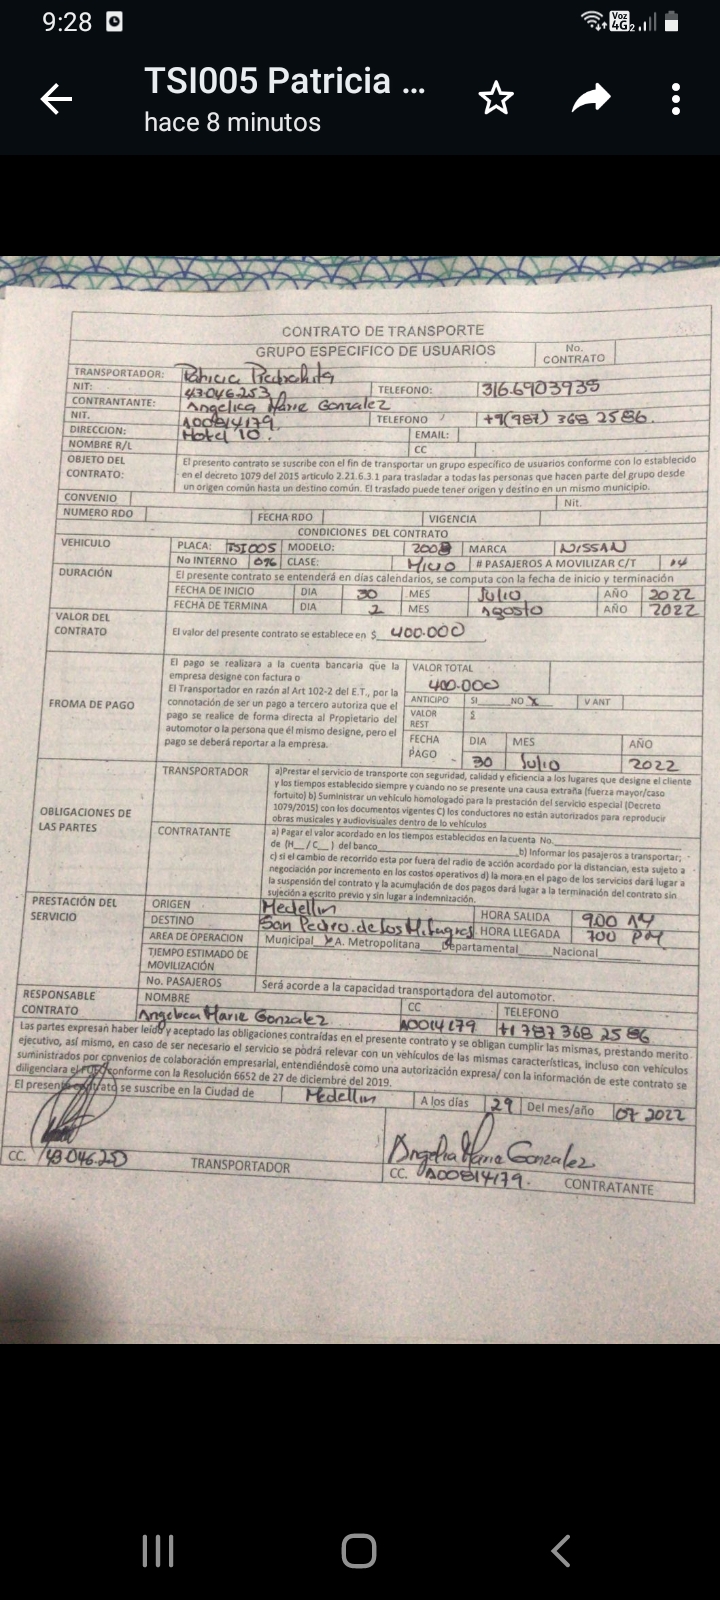 9:28
Voz 4G 2
TSI005 Patricia ...
hace 8 minutos
CONTRATO DE TRANSPORTE
GRUPO ESPECIFICO DE USUARIOS No. CONTRATO
TRANSPORTADOR: Patricia Piedrahita
NIT: 43046.253 TELEFONO: 316.6903935
CONTRANTANTE: Angelica Marie Gonzalez
NIT. A00814179. TELEFONO +1(787) 368 2586.
DIRECCION: Hotel 10. EMAIL:
NOMBRE R/L CC
OBJETO DEL CONTRATO: El presento contrato se suscribe con el fin de transportar un grupo especifico de usuarios conforme con lo establecido
en el decreto 1079 del 2015 articulo 2.21.6.3.1 para trasladar a todas las personas que hacen parte del grupo desde
un origen común hasta un destino común. El traslado puede tener origen y destino en un mismo municipio.
CONVENIO Nit.
NUMERO RDO FECHA RDO VIGENCIA
CONDICIONES DEL CONTRATO
VEHICULO PLACA: TSI005 MODELO: 2008 MARCA NISSAN
No INTERNO 096 CLASE: Micro # PASAJEROS A MOVILIZAR C/T 14
DURACIÓN El presente contrato se entenderá en días calendarios, se computa con la fecha de inicio y terminación
FECHA DE INICIO DIA 30 MES Julio AÑO 2022
FECHA DE TERMINA DIA 2 MES Agosto AÑO 2022
VALOR DEL CONTRATO El valor del presente contrato se establece en $ 400.000
FROMA DE PAGO
El pago se realizara a la cuenta bancaria que la
empresa designe con factura o
El Transportador en razón al Art 102-2 del E.T., por la
connotación de ser un pago a tercero autoriza que el
pago se realice de forma directa al Propietario del
automotor o la persona que él mismo designe, pero el
pago se deberá reportar a la empresa.
VALOR TOTAL
400.000
ANTICIPO SI____NO X V ANT
VALOR REST $
FECHA PAGO DIA MES AÑO
30 Julio 2022
OBLIGACIONES DE LAS PARTES
TRANSPORTADOR a)Prestar el servicio de transporte con seguridad, calidad y eficiencia a los lugares que designe el cliente
y los tiempos establecido siempre y cuando no se presente una causa extraña (fuerza mayor/caso
fortuito) b) Suministrar un vehículo homologado para la prestación del servicio especial (Decreto
1079/2015) con los documentos vigentes C) los conductores no están autorizados para reproducir
obras musicales y audiovisuales dentro de lo vehículos
CONTRATANTE a) Pagar el valor acordado en los tiempos establecidos en la cuenta No.
de (H__/C__) del banco____ b) Informar los pasajeros a transportar;
c) si el cambio de recorrido esta por fuera del radio de acción acordado por la distancian, esta sujeto a
negociación por incremento en los costos operativos d) la mora en el pago de los servicios dará lugar a
la suspensión del contrato y la acumulación de dos pagos dará lugar a la terminación del contrato sin
sujeción a escrito previo y sin lugar a indemnización.
PRESTACIÓN DEL SERVICIO
ORIGEN Medellin HORA SALIDA 900 AM
DESTINO San Pedro de los Milagros HORA LLEGADA 700 PM
AREA DE OPERACION Municipal X A. Metropolitana____Departamental____Nacional____
TIEMPO ESTIMADO DE MOVILIZACIÓN
No. PASAJEROS Será acorde a la capacidad transportadora del automotor.
RESPONSABLE CONTRATO NOMBRE CC TELEFONO
Angelica Marie Gonzalez A0014179 +1 787 368 2586
Las partes expresan haber leído y aceptado las obligaciones contraídas en el presente contrato y se obligan cumplir las mismas, prestando merito
ejecutivo, así mismo, en caso de ser necesario el servicio se podrá relevar con un vehículos de las mismas características, incluso con vehículos
suministrados por convenios de colaboración empresarial, entendiéndose como una autorización expresa/ con la información de este contrato se
diligenciara el FUEC conforme con la Resolución 6652 de 27 de diciembre del 2019.
El presente contrato se suscribe en la Ciudad de Medellin A los días 29 Del mes/año 07 2022
Angelica Marie Gonzalez
CC. 43.046.253 TRANSPORTADOR CC. A00814179. CONTRATANTE